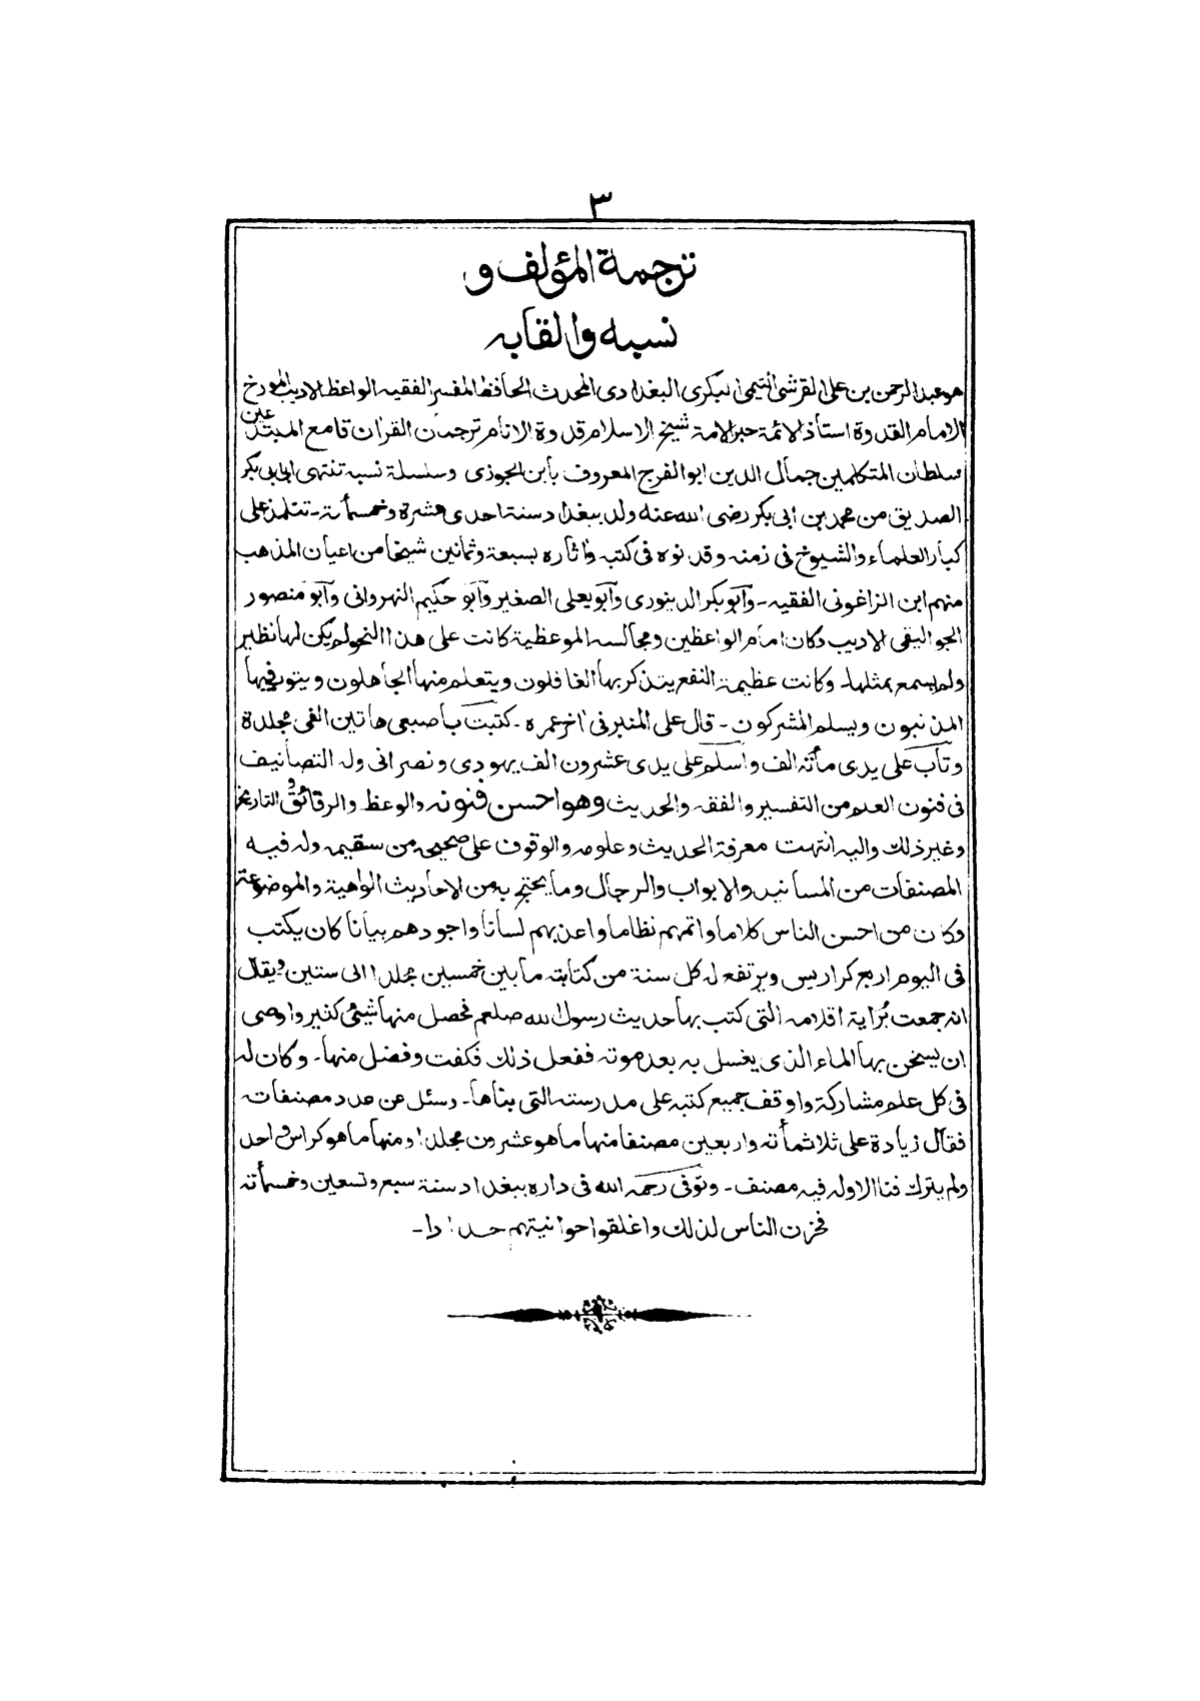 ٣
ترجمة المؤلف و
نسبه والقابه
هو عبد الرحمن بن على القرشى التيمى البكرى البغدادى المحدث الحافظ المفسر الفقيه الواعظ الاديب المورخ
الامام القدوة استاذ الائمة حبر الامة شيخ الاسلام قدوة الانام ترجمان القران قامع المبتدعين
سلطان المتكلمين جمال الدين ابو الفرج المعروف بابن الجوزى وسلسلة نسبة تنتهى الى ابى بكر
الصديق من محمد بن ابى بكر رضى الله عنه ولد ببغداد سنة احدى عشرة وخمسمأتة - تتلمذ على
كبار العلماء والشيوخ فى زمنه وقد نوه فى كتبه واثاره بسبعة وثمانين شيخا من اعيان المذهب
منهم ابن الزاغونى الفقيه - وأبوبكر الدينورى وأبويعلى الصغير وأبو حكيم النهروانى وآبو منصور
الجواليقى الاديب وكان امام الواعظين ومجالسه الموعظية كانت على هذا النحو لم يكن لها نظير
ولم يسمع بمثلها - وكانت عظيمة النفع يتذكر بها الغافلون ويتعلم منها الجاهلون ويتوب فيها
المذنبون ويسلم المشركون - قال على المنبر فى اخر عمره - كتبت باصبعى هاتين الفى مجلدة
وتاب على يدى مأتة الف واسلم على يدى عشرون الف يهودى ونصرانى وله التصانيف
فى فنون العلم من التفسير والفقه والحديث وهو احسن فنونه والوعظ والرقائق و التاريخ
وغير ذلك واليه انتهت معرفة الحديث وعلومه والوقوف على صحيحه من سقيمه وله فيه
المصنفات من المسانيد والابواب والرجال وما يحتج به من الاحاديث الواهية والموضوعة
وكان من احسن الناس كلاما واتمهم نظاما واعذبهم لسانا واجودهم بيانا كان يكتب
فى اليوم اربع كراريس ويرتفع له كل سنة من كتابته ما بين خمسين مجلدا الى ستين ويقال
انه جمعت بُرَاية اقلامه التى كتب بها حديث رسول الله صلعم فحصل منها شيئ كثير واوصى
ان يسخن بها الماء الذى يغسل به بعد موته ففعل ذلك فكفت وفضل منها - وكان له
فى كل علم مشاركة واوقف جميع كتبه على مدرسته التى بناها - وسئل عن عدد مصنفاته
فقال زيادة على ثلاثمأته واربعين مصنفا منها ما هو عشرون مجلدا ومنها ما هو كراس واحد
ولم يترك فنا الاوله فيه مصنف - وتوفى رحمه الله فى داره ببغداد سنة سبع وتسعين وخمسمأته
فحزن الناس لذلك واغلقوا حوانيتهم حدادا -